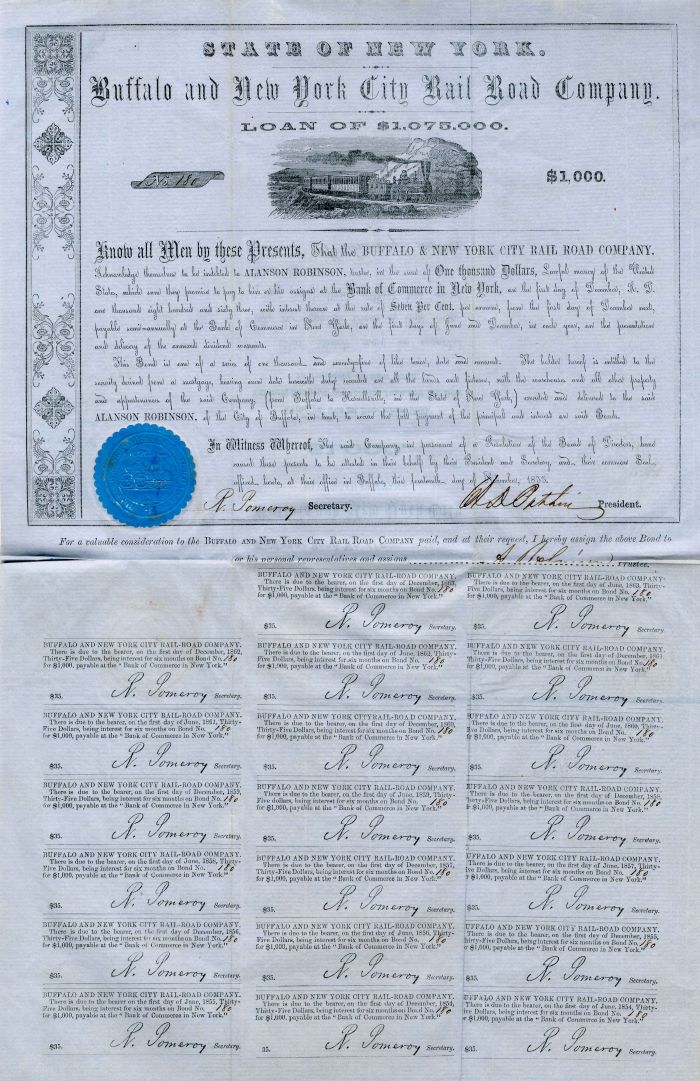 STATE OF NEW YORK.
Buffalo and New York City Rail Road Company.
LOAN OF $1,075,000.
No. 180
$1,000.
Know all Men by these Presents, That the BUFFALO & NEW YORK CITY RAIL ROAD COMPANY,
Acknowledge themselves to be indebted to ALANSON ROBINSON, trustee, in the sum of One thousand Dollars, Lawful money of the United
States, which sum they promise to pay to him or his assigns at the Bank of Commerce in New York, on the first day of December, A. D.
one thousand eight hundred and sixty three, with interest thereon at the rate of Seven Per Cent. per annum, from the first day of December next,
payable semi-annually at the Bank of Commerce in New York, on the first days of June and December, in each year, on the presentation
and delivery of the annexed dividend warrants.
This Bond is one of a series of one thousand and seventy-five of like tenor, date and amount. The holder hereof is entitled to the
security derived from a mortgage, bearing even date herewith duly recorded on all the lands and fixtures, with the warehouses and all other property
and appurtenances of the said Company, (from Buffalo to Hornellsville, in the State of New York,) executed and delivered to the said
ALANSON ROBINSON, of the City of Buffalo, in trust, to secure the full payment of the principal and interest on said Bonds.
In Witness Whereof, The said Company, in pursuance of a Resolution of the Board of Directors, have
caused these presents to be attested in their behalf by their President and Secretary, and their common Seal
affixed hereto, at their office in Buffalo, this day of 1853.
R. Pomeroy Secretary. President.
For a valuable consideration to the BUFFALO AND NEW YORK CITY RAIL ROAD COMPANY paid, and at their request, I hereby assign the above Bond to
or his personal representatives and assigns Trustee.
BUFFALO AND NEW YORK CITY RAIL-ROAD COMPANY.
There is due to the bearer, on the first day of December, 1863,
Thirty-Five Dollars, being interest for six months on Bond No. 180
for $1,000, payable at the "Bank of Commerce in New York."
$35. R. Pomeroy Secretary.
BUFFALO AND NEW YORK CITY RAIL-ROAD COMPANY.
There is due to the bearer, on the first day of June, 1863, Thirty-
Five Dollars, being interest for six months on Bond No. 180
for $1,000, payable at the "Bank of Commerce in New York."
$35. R. Pomeroy Secretary.
BUFFALO AND NEW YORK CITY RAIL-ROAD COMPANY.
There is due to the bearer, on the first day of December, 1862,
Thirty-Five Dollars, being interest for six months on Bond No. 180
for $1,000, payable at the "Bank of Commerce in New York."
$35. R. Pomeroy Secretary.
BUFFALO AND NEW YORK CITY RAIL-ROAD COMPANY.
There is due to the bearer, on the first day of June, 1862, Thirty-
Five Dollars, being interest for six months on Bond No. 180
for $1,000, payable at the "Bank of Commerce in New York."
$35. R. Pomeroy Secretary.
BUFFALO AND NEW YORK CITY RAIL-ROAD COMPANY.
There is due to the bearer, on the first day of December, 1861
Thirty-Five Dollars, being interest for six months on Bond No. 180
for $1,000, payable at the "Bank of Commerce in New York."
$35. R. Pomeroy Secretary.
BUFFALO AND NEW YORK CITY RAIL-ROAD COMPANY.
There is due to the bearer, on the first day of June, 1861, Thirty-
Five Dollars, being interest for six months on Bond No. 180
for $1,000, payable at the "Bank of Commerce in New York."
$35. R. Pomeroy Secretary.
BUFFALO AND NEW YORK CITY RAIL-ROAD COMPANY.
There is due to the bearer, on the first day of December, 1860,
Thirty-Five Dollars, being interest for six months on Bond No. 180
for $1,000, payable at the "Bank of Commerce in New York."
$35. R. Pomeroy Secretary.
BUFFALO AND NEW YORK CITY RAIL-ROAD COMPANY.
There is due to the bearer, on the first day of June, 1860, Thirty-
Five Dollars, being interest for six months on Bond No. 180
for $1,000, payable at the "Bank of Commerce in New York."
$35. R. Pomeroy Secretary.
BUFFALO AND NEW YORK CITY RAIL-ROAD COMPANY.
There is due to the bearer, on the first day of December, 1859,
Thirty-Five Dollars, being interest for six months on Bond No. 180
for $1,000, payable at the "Bank of Commerce in New York."
$35. R. Pomeroy Secretary.
BUFFALO AND NEW YORK CITY RAIL-ROAD COMPANY.
There is due to the bearer, on the first day of June, 1859, Thirty-
Five Dollars, being interest for six months on Bond No. 180
for $1,000, payable at the "Bank of Commerce in New York."
$35. R. Pomeroy Secretary.
BUFFALO AND NEW YORK CITY RAIL-ROAD COMPANY.
There is due to the bearer, on the first day of December, 1858,
Thirty-Five Dollars, being interest for six months on Bond No. 180
for $1,000, payable at the "Bank of Commerce in New York."
$35. R. Pomeroy Secretary.
BUFFALO AND NEW YORK CITY RAIL-ROAD COMPANY.
There is due to the bearer, on the first day of June, 1858, Thirty-
Five Dollars, being interest for six months on Bond No. 180
for $1,000, payable at the "Bank of Commerce in New York."
$35. R. Pomeroy Secretary.
BUFFALO AND NEW YORK CITY RAIL-ROAD COMPANY.
There is due to the bearer, on the first day of December, 1857,
Thirty-Five Dollars, being interest for six months on Bond No. 180
for $1,000, payable at the "Bank of Commerce in New York."
$35. R. Pomeroy Secretary.
BUFFALO AND NEW YORK CITY RAIL-ROAD COMPANY.
There is due to the bearer, on the first day of June, 1857, Thirty-
Five Dollars, being interest for six months on Bond No. 180
for $1,000, payable at the "Bank of Commerce in New York."
$35. R. Pomeroy Secretary.
BUFFALO AND NEW YORK CITY RAIL-ROAD COMPANY.
There is due to the bearer, on the first day of December, 1856,
Thirty-Five Dollars, being interest for six months on Bond No. 180
for $1,000, payable at the "Bank of Commerce in New York."
$35. R. Pomeroy Secretary.
BUFFALO AND NEW YORK CITY RAIL-ROAD COMPANY.
There is due to the bearer, on the first day of June, 1856, Thirty-
Five Dollars, being interest for six months on Bond No. 180
for $1,000, payable at the "Bank of Commerce in New York."
$35. R. Pomeroy Secretary.
BUFFALO AND NEW YORK CITY RAIL-ROAD COMPANY.
There is due to the bearer, on the first day of December, 1855,
Thirty-Five Dollars, being interest for six months on Bond No. 180
for $1,000, payable at the "Bank of Commerce in New York."
$35. R. Pomeroy Secretary.
BUFFALO AND NEW YORK CITY RAIL-ROAD COMPANY.
There is due to the bearer, on the first day of June, 1855, Thirty-
Five Dollars, being interest for six months on Bond No. 180
for $1,000, payable at the "Bank of Commerce in New York."
$35. R. Pomeroy Secretary.
BUFFALO AND NEW YORK CITY RAIL-ROAD COMPANY.
There is due to the bearer, on the first day of December, 1854,
Thirty-Five Dollars, being interest for six months on Bond No. 180
for $1,000, payable at the "Bank of Commerce in New York."
35. R. Pomeroy Secretary.
BUFFALO AND NEW YORK CITY RAIL-ROAD COMPANY.
There is due to the bearer, on the first day of June, 1854, Thirty-
Five Dollars, being interest for six months on Bond No. 180
for $1,000, payable at the "Bank of Commerce in New York."
$35. R. Pomeroy Secretary.